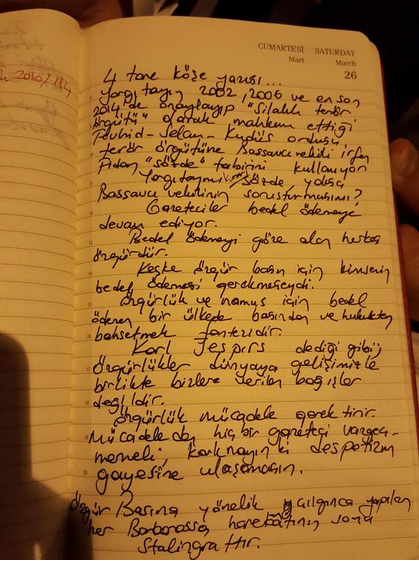 CUMARTESİ SATURDAY
Mart March
26
4 tane köşe yazısı...
Yargıtayın 2002, 2006 ve en son
2014'de onaylayıp "Silahlı terör
örgütü" olarak mahkum ettiği
Tevhid-Selam-Kudüs ordusu,
terör örgütüne Başsavcıvekili İrfan
Fidan "sözde" tabirini kullanıyor
Yargıtayımız sözde, yoksa
Başsavcı vekilinin soruşturması mı?
Gazeteciler bedel ödemeye
devam ediyor.
Bedel ödemeyi göze alan herkes
özgürdür.
Keşke özgür basın için kimsenin
bedel ödemesi gerekmeseydi.
Özgürlük ve namus için bedel
ödenen bir ülkede basından ve hukuktan
bahsetmek fantezidir.
Karl Jespırs dediği gibi;
Özgürlükler dünyaya gelişimizle
birlikte bizlere verilen bağışlar
değildir.
Özgürlük mücadele gerektirir.
Mücadeleden hiçbir gazeteci vazgeç-
memeli, korkmayın ki despotizm
gayesine ulaşmasın.
Özgür Basına yönelik çılgınca yapılan
her Barbarossa harekatının sonu
Stalingrattır.